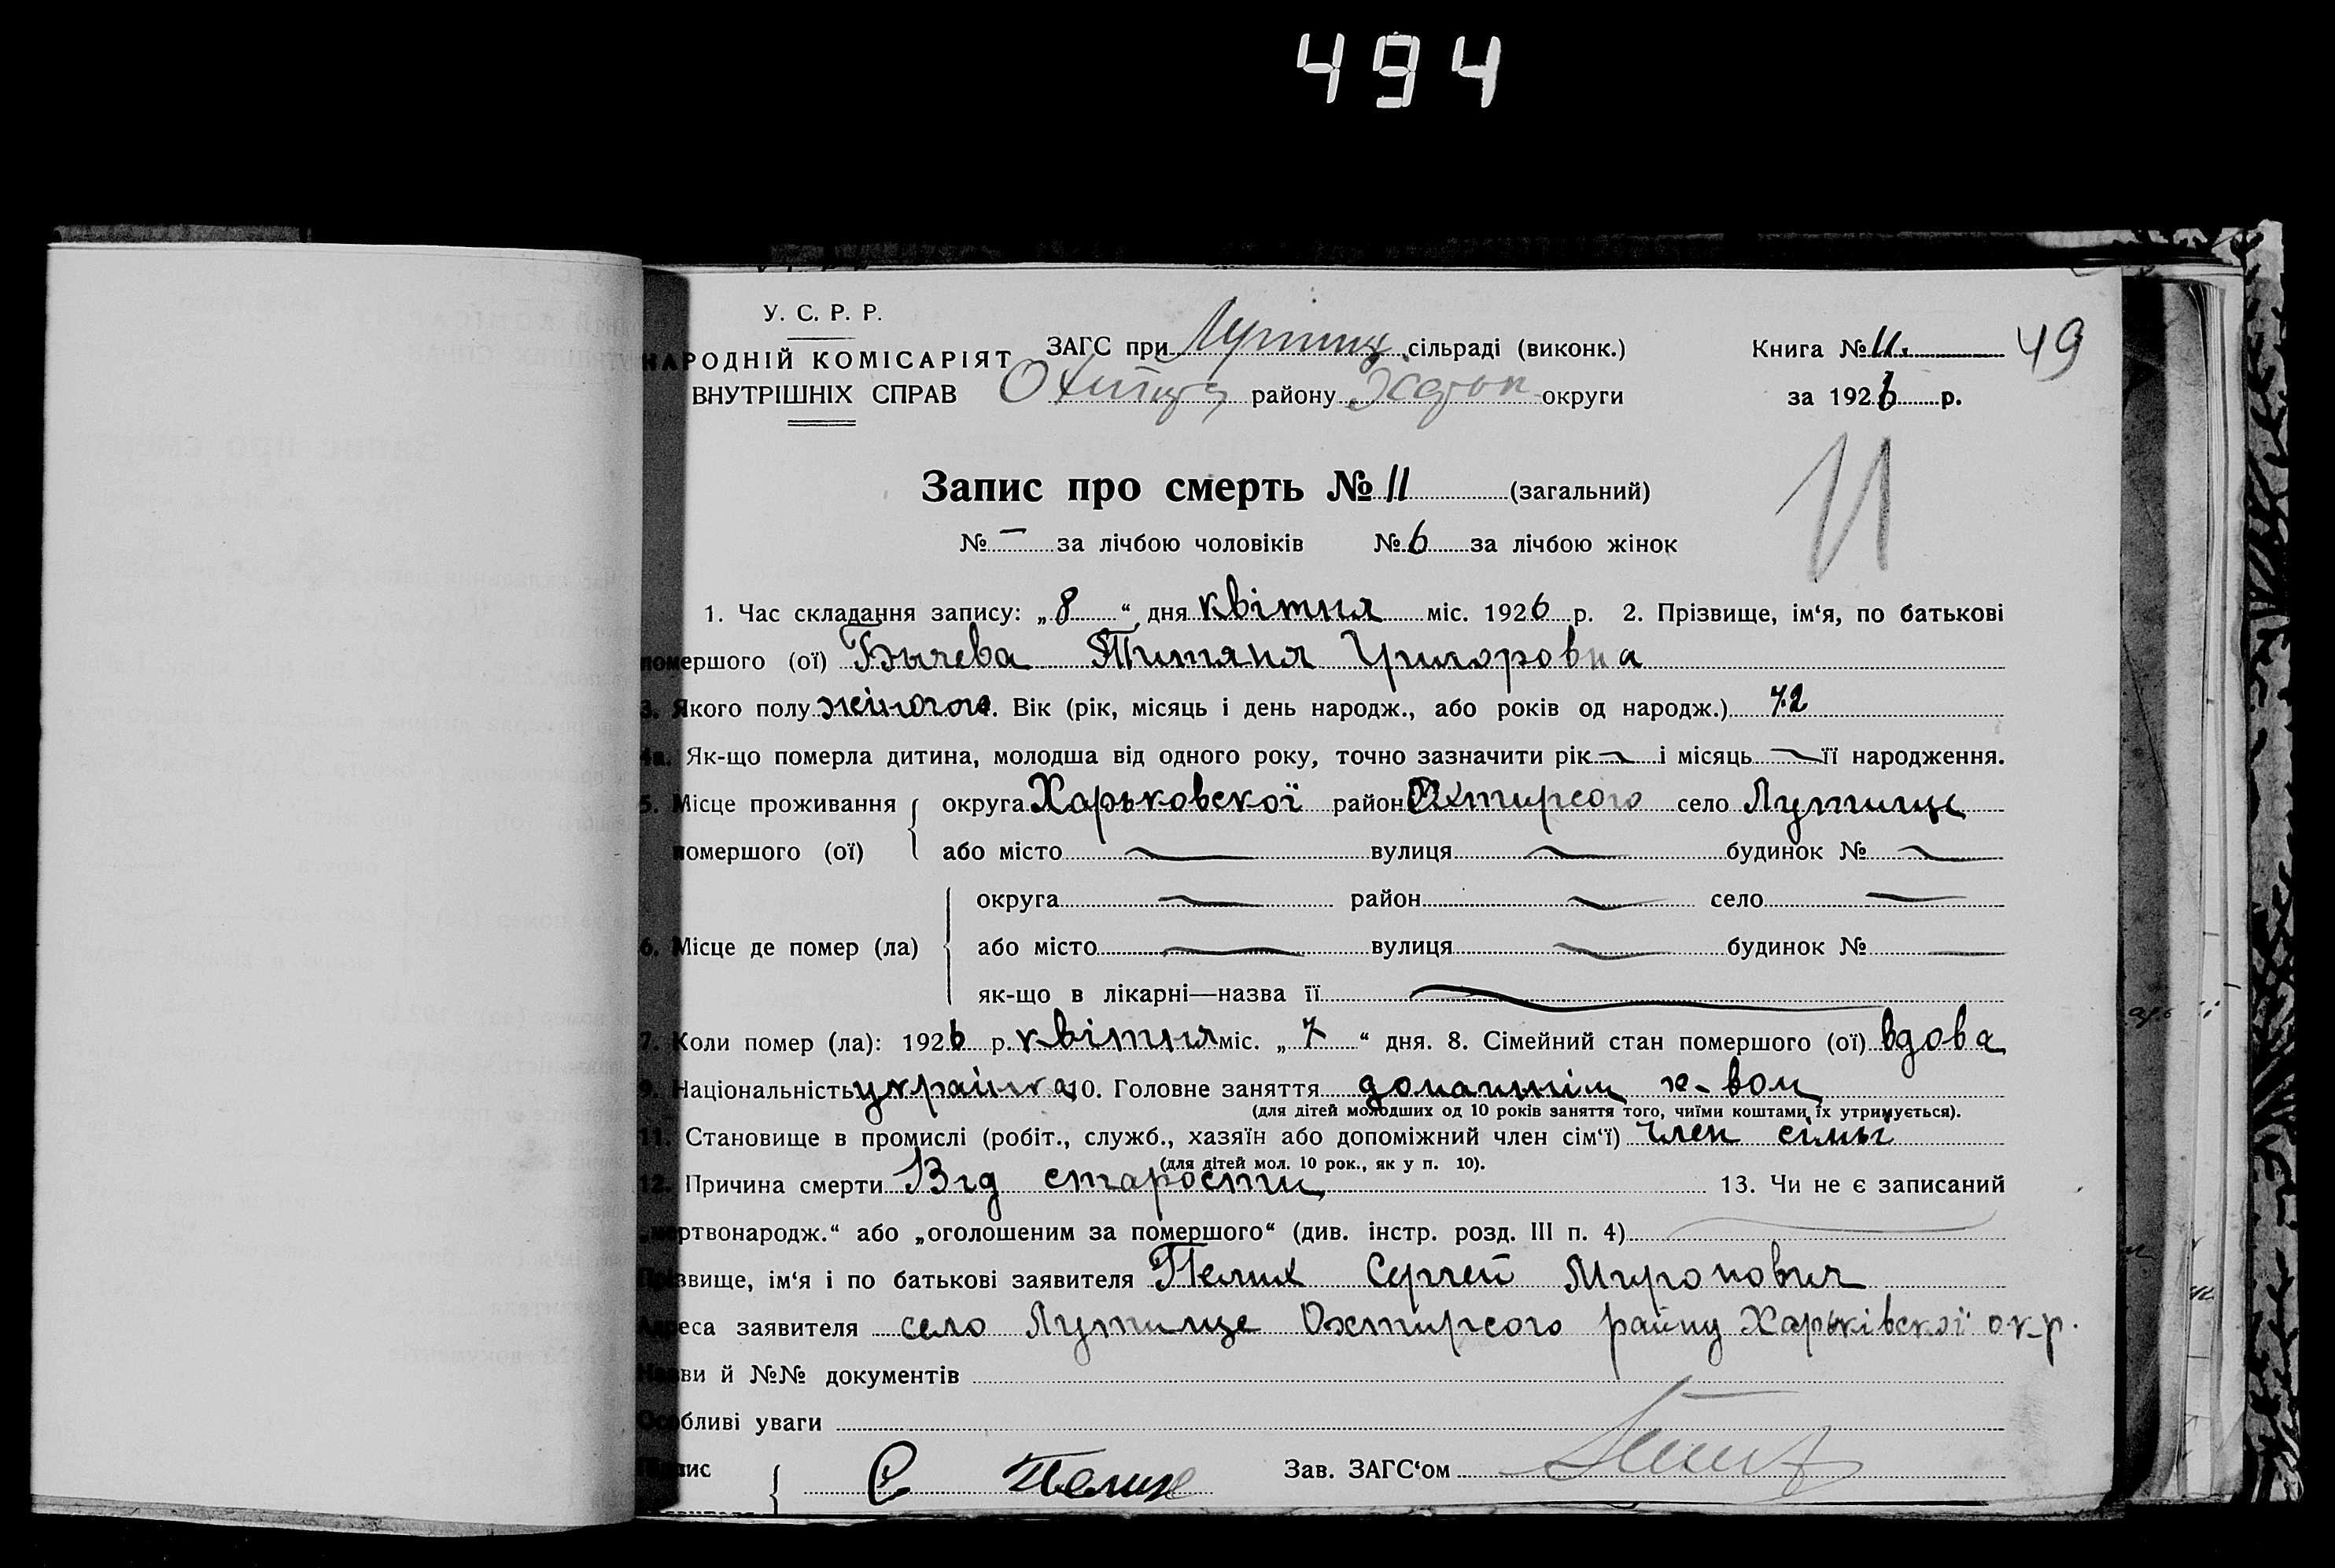 494
У. С. Р. Р.
НАРОДНІЙ КОМІСАРІЯТ
ВНУТРІШНІХ СПРАВ
ЗАГС при Лутищ сільраді (виконк.)
району округи
Книга № 11.
за 1926 р.
49
Запис про смерть № 11 (загальний)
11
№ — за лічбою чоловіків № 6 за лічбою жінок
1. Час складання запису: „8“ дня квітня міс. 1926 р. 2. Прізвище, ім‘я, по батькові
помершого (ої) Бычева Титяня Григоровна
3. Якого полу жіногого. Вік (рік, місяць і день народж., або років од народж.) 72
4а. Як-що померла дитина, молодша від одного року, точно зазначити рік — і місяць — її народження.
5. Місце проживання округа Харьковскої район Охтирсого село Лутище
помершого (ої) або місто — вулиця — будинок № —
округа — район — село —
6. Місце де помер (ла) або місто — вулиця — будинок № —
як-що в лікарні—назва її —
7. Коли помер (ла): 1926 р. квітня міс. „7“ дня. 8. Сімейний стан помершого (ої) вдова
9. Національність українка 10. Головне заняття домашнім х-вом
(для дітей молодших од 10 років заняття того, чиїми коштами їх утримується).
11. Становище в промислі (робіт., служб., хазяїн або допоміжний член сім‘ї) член сімьї
(для дітей мол. 10 рок., як у п. 10).
12. Причина смерти Від старости 13. Чи не є записаний
„мертвонародж.“ або „оголошеним за помершого“ (див. інстр. розд. III п. 4)
Прізвище, ім‘я і по батькові заявителя Пелих Сергей Миронович
Адреса заявителя село Лутище Охтирсого райну Харьківскої окр.
Назви й №№ документів
Особливі уваги
Підпис С Пелих Зав. ЗАГС‘ом